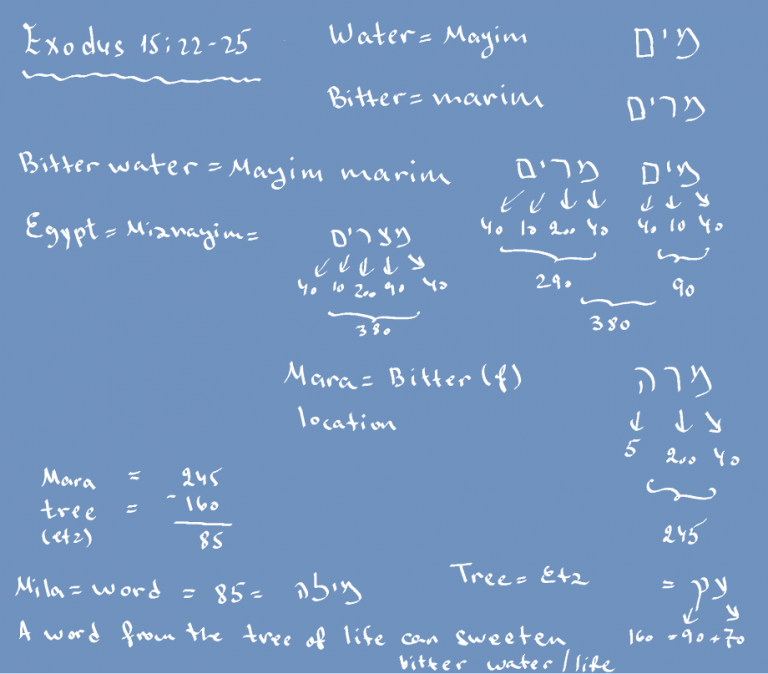 Exodus 15:22-25
Water = Mayim מים
Bitter = marim מרים
Bitter water = Mayim marim מרים מים
40 10 200 40 40 10 40
290 90
380
Egypt = Mizrayim = מצרים
40 10 200 90 40
380
Mara = Bitter (f) מרה
location
5 200 40
245
Mara = 245
tree = - 160
(etz) 85
Tree = Etz = עץ
160 = 90 + 70
Mila = word = 85 = מילה
A word from the tree of life can sweeten
bitter water/life